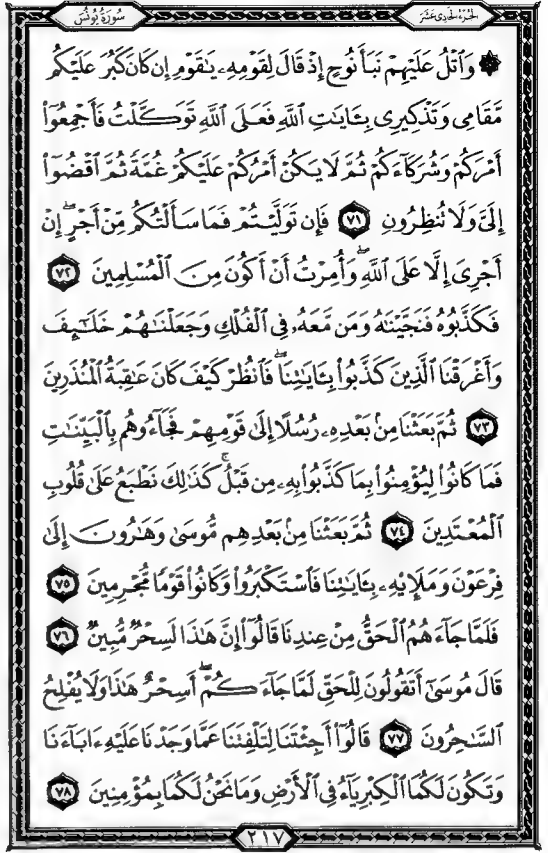 سُورَةُ يُونُسَ
الجُزءُ الحَادِى عَشَرَ
۞ وَٱتْلُ عَلَيْهِمْ نَبَأَ نُوحٍ إِذْ قَالَ لِقَوْمِهِۦ يَٰقَوْمِ إِن كَانَ كَبُرَ عَلَيْكُم
مَّقَامِى وَتَذْكِيرِى بِـَٔايَٰتِ ٱللَّهِ فَعَلَى ٱللَّهِ تَوَكَّلْتُ فَأَجْمِعُوٓا۟
أَمْرَكُمْ وَشُرَكَآءَكُمْ ثُمَّ لَا يَكُنْ أَمْرُكُمْ عَلَيْكُمْ غُمَّةً ثُمَّ ٱقْضُوٓا۟
إِلَىَّ وَلَا تُنظِرُونِ ٧١ فَإِن تَوَلَّيْتُمْ فَمَا سَأَلْتُكُم مِّنْ أَجْرٍ ۖ إِنْ
أَجْرِىَ إِلَّا عَلَى ٱللَّهِ ۖ وَأُمِرْتُ أَنْ أَكُونَ مِنَ ٱلْمُسْلِمِينَ ٧٢
فَكَذَّبُوهُ فَنَجَّيْنَٰهُ وَمَن مَّعَهُۥ فِى ٱلْفُلْكِ وَجَعَلْنَٰهُمْ خَلَٰٓئِفَ
وَأَغْرَقْنَا ٱلَّذِينَ كَذَّبُوا۟ بِـَٔايَٰتِنَا ۖ فَٱنظُرْ كَيْفَ كَانَ عَٰقِبَةُ ٱلْمُنذَرِينَ
٧٣ ثُمَّ بَعَثْنَا مِنۢ بَعْدِهِۦ رُسُلًا إِلَىٰ قَوْمِهِمْ فَجَآءُوهُم بِٱلْبَيِّنَٰتِ
فَمَا كَانُوا۟ لِيُؤْمِنُوا۟ بِمَا كَذَّبُوا۟ بِهِۦ مِن قَبْلُ ۚ كَذَٰلِكَ نَطْبَعُ عَلَىٰ قُلُوبِ
ٱلْمُعْتَدِينَ ٧٤ ثُمَّ بَعَثْنَا مِنۢ بَعْدِهِم مُّوسَىٰ وَهَٰرُونَ إِلَىٰ
فِرْعَوْنَ وَمَلَإِي۟هِۦ بِـَٔايَٰتِنَا فَٱسْتَكْبَرُوا۟ وَكَانُوا۟ قَوْمًا مُّجْرِمِينَ ٧٥
فَلَمَّا جَآءَهُمُ ٱلْحَقُّ مِنْ عِندِنَا قَالُوٓا۟ إِنَّ هَٰذَا لَسِحْرٌ مُّبِينٌ ٧٦
قَالَ مُوسَىٰٓ أَتَقُولُونَ لِلْحَقِّ لَمَّا جَآءَكُمْ ۖ أَسِحْرٌ هَٰذَا وَلَا يُفْلِحُ
ٱلسَّٰحِرُونَ ٧٧ قَالُوٓا۟ أَجِئْتَنَا لِتَلْفِتَنَا عَمَّا وَجَدْنَا عَلَيْهِ ءَابَآءَنَا
وَتَكُونَ لَكُمَا ٱلْكِبْرِيَآءُ فِى ٱلْأَرْضِ وَمَا نَحْنُ لَكُمَا بِمُؤْمِنِينَ ٧٨
٢١٧